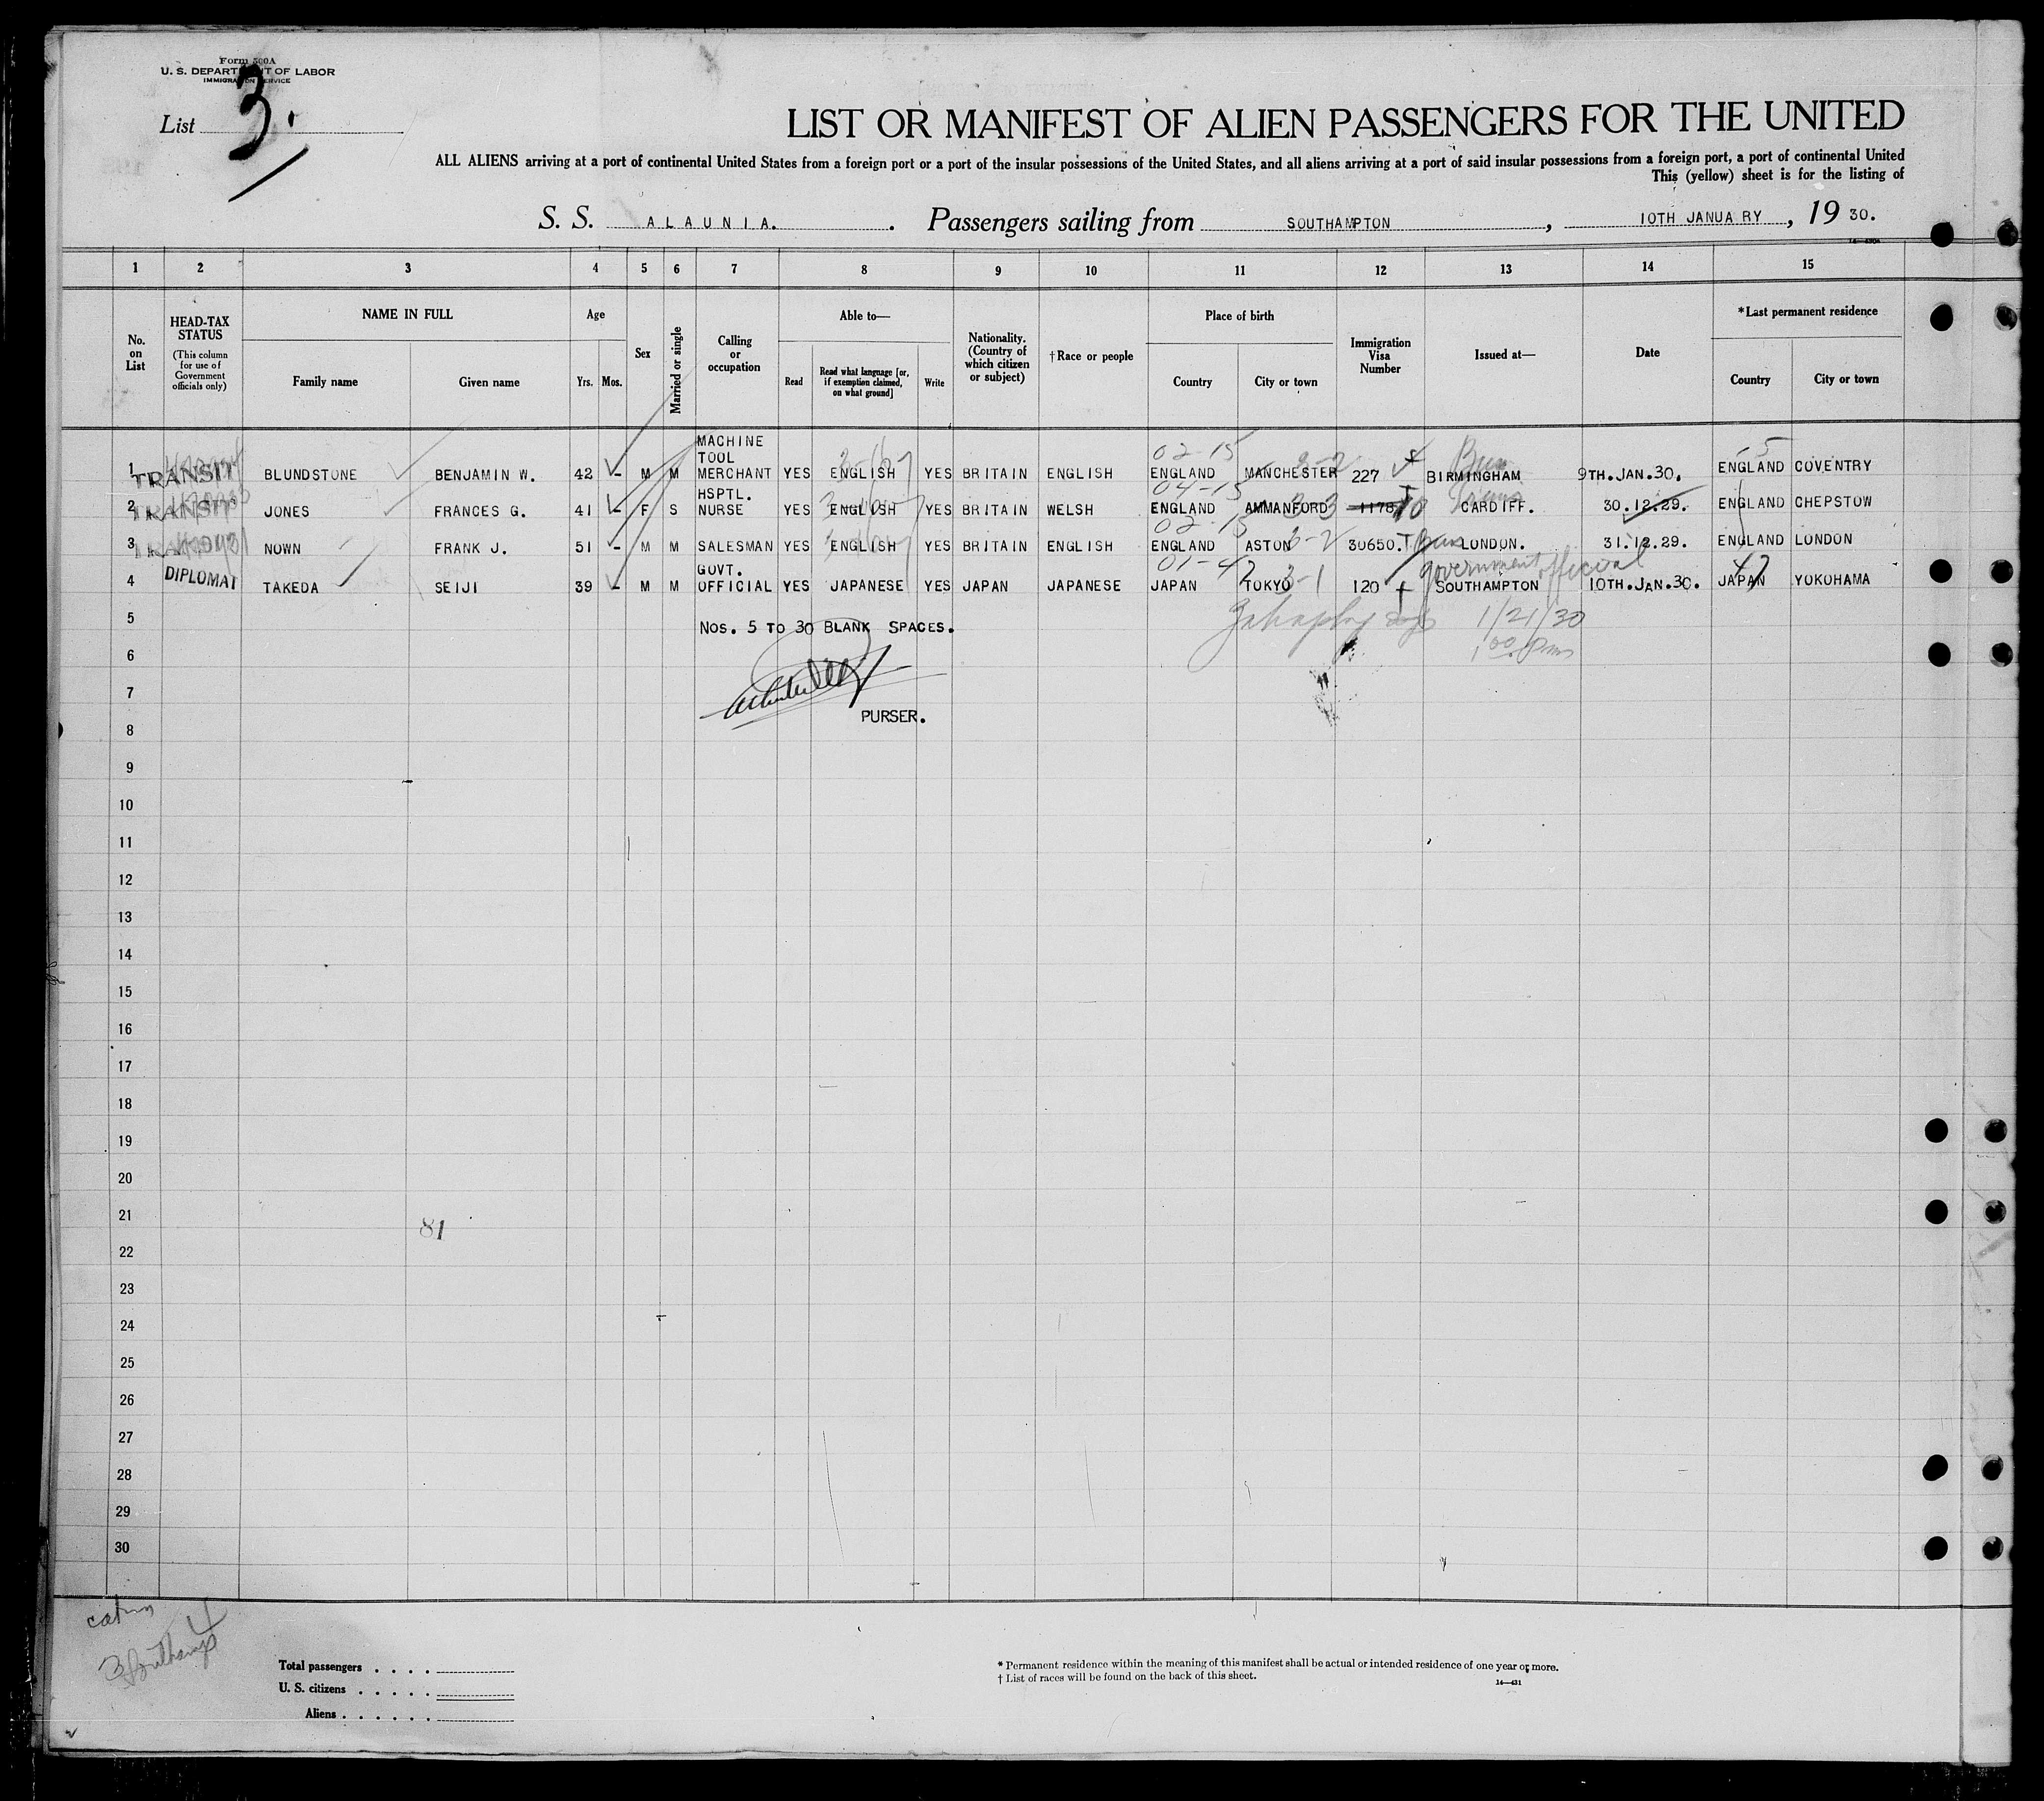 Form 500A
U. S. DEPARTMENT OF LABOR
IMMIGRATION SERVICE
List 3.
LIST OR MANIFEST OF ALIEN PASSENGERS FOR THE UNITED
ALL ALIENS arriving at a port of continental United States from a foreign port or a port of the insular possessions of the United States, and all aliens arriving at a port of said insular possessions from a foreign port, a port of continental United
This (yellow) sheet is for the listing of
S. S. ALAUNIA. . Passengers sailing from SOUTHAMPTON , 10TH JANUARY , 19 30.
1 2 3 4 5 6 7 8 9 10 11 12 13 14 15
No. on List
HEAD-TAX STATUS
(This column for use of Government officials only)
NAME IN FULL
Family name Given name
Age
Yrs. Mos.
Sex
Married or single
Calling or occupation
Able to—
Read
Read what language [or, if exemption claimed, on what ground]
Write
Nationality. (Country of which citizen or subject)
†Race or people
Place of birth
Country City or town
Immigration Visa Number
Issued at—
Date
*Last permanent residence
Country City or town
02-15
1 TRANSIT BLUNDSTONE BENJAMIN W. 42 - M M MACHINE TOOL MERCHANT YES ENGLISH YES BRITAIN ENGLISH ENGLAND MANCHESTER 227 BIRMINGHAM 9TH.JAN.30. ENGLAND COVENTRY
04-15
2 TRANSIT JONES FRANCES G. 41 - F S HSPTL. NURSE YES ENGLISH YES BRITAIN WELSH ENGLAND AMMANFORD 1178 CARDIFF. 30.12.29. ENGLAND CHEPSTOW
02-15
3 TRANSIT NOWN FRANK J. 51 - M M SALESMAN YES ENGLISH YES BRITAIN ENGLISH ENGLAND ASTON 30650. LONDON. 31.12.29. ENGLAND LONDON
01-47 Government official
4 DIPLOMAT TAKEDA SEIJI 39 - M M GOVT. OFFICIAL YES JAPANESE YES JAPAN JAPANESE JAPAN TOKYO 120 SOUTHAMPTON 10TH.JAN.30. JAPAN YOKOHAMA
5
1/21/30
NOS. 5 TO 30 BLANK SPACES.
6
7
PURSER.
8
9
10
11
12
13
14
15
16
17
18
19
20
21
81
22
23
24
25
26
27
28
29
30
Total passengers . . . .
U. S. citizens . . . . .
Aliens . . . . . .
* Permanent residence within the meaning of this manifest shall be actual or intended residence of one year or more.
† List of races will be found on the back of this sheet.
14—431